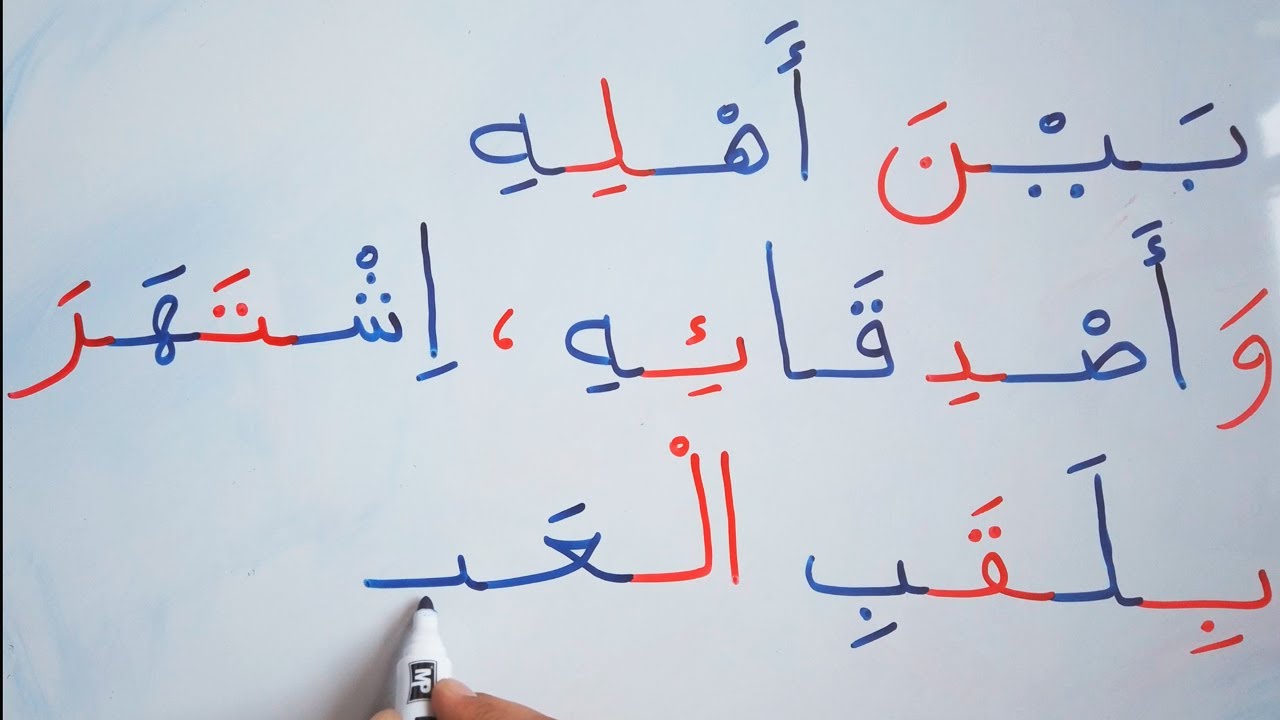 بَيْنَ أَهْلِهِ
وَأَصْدِقَائِهِ، اِشْتَهَرَ
بِلَقَبِ الْعَبـ
MP